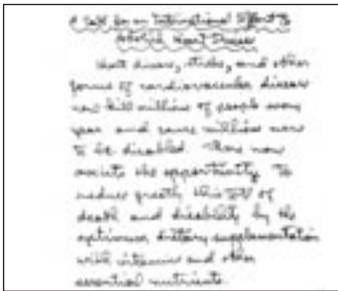 A Call for an International Effort to
Abolish Heart Disease
Heart disease, stroke, and other
forms of cardiovascular disease
now kill millions of people every
year and cause millions more
to be disabled. There now
exists the opportunity to
reduce greatly this toll of
death and disability by the
optimum dietary supplementation
with vitamins and other
essential nutrients.